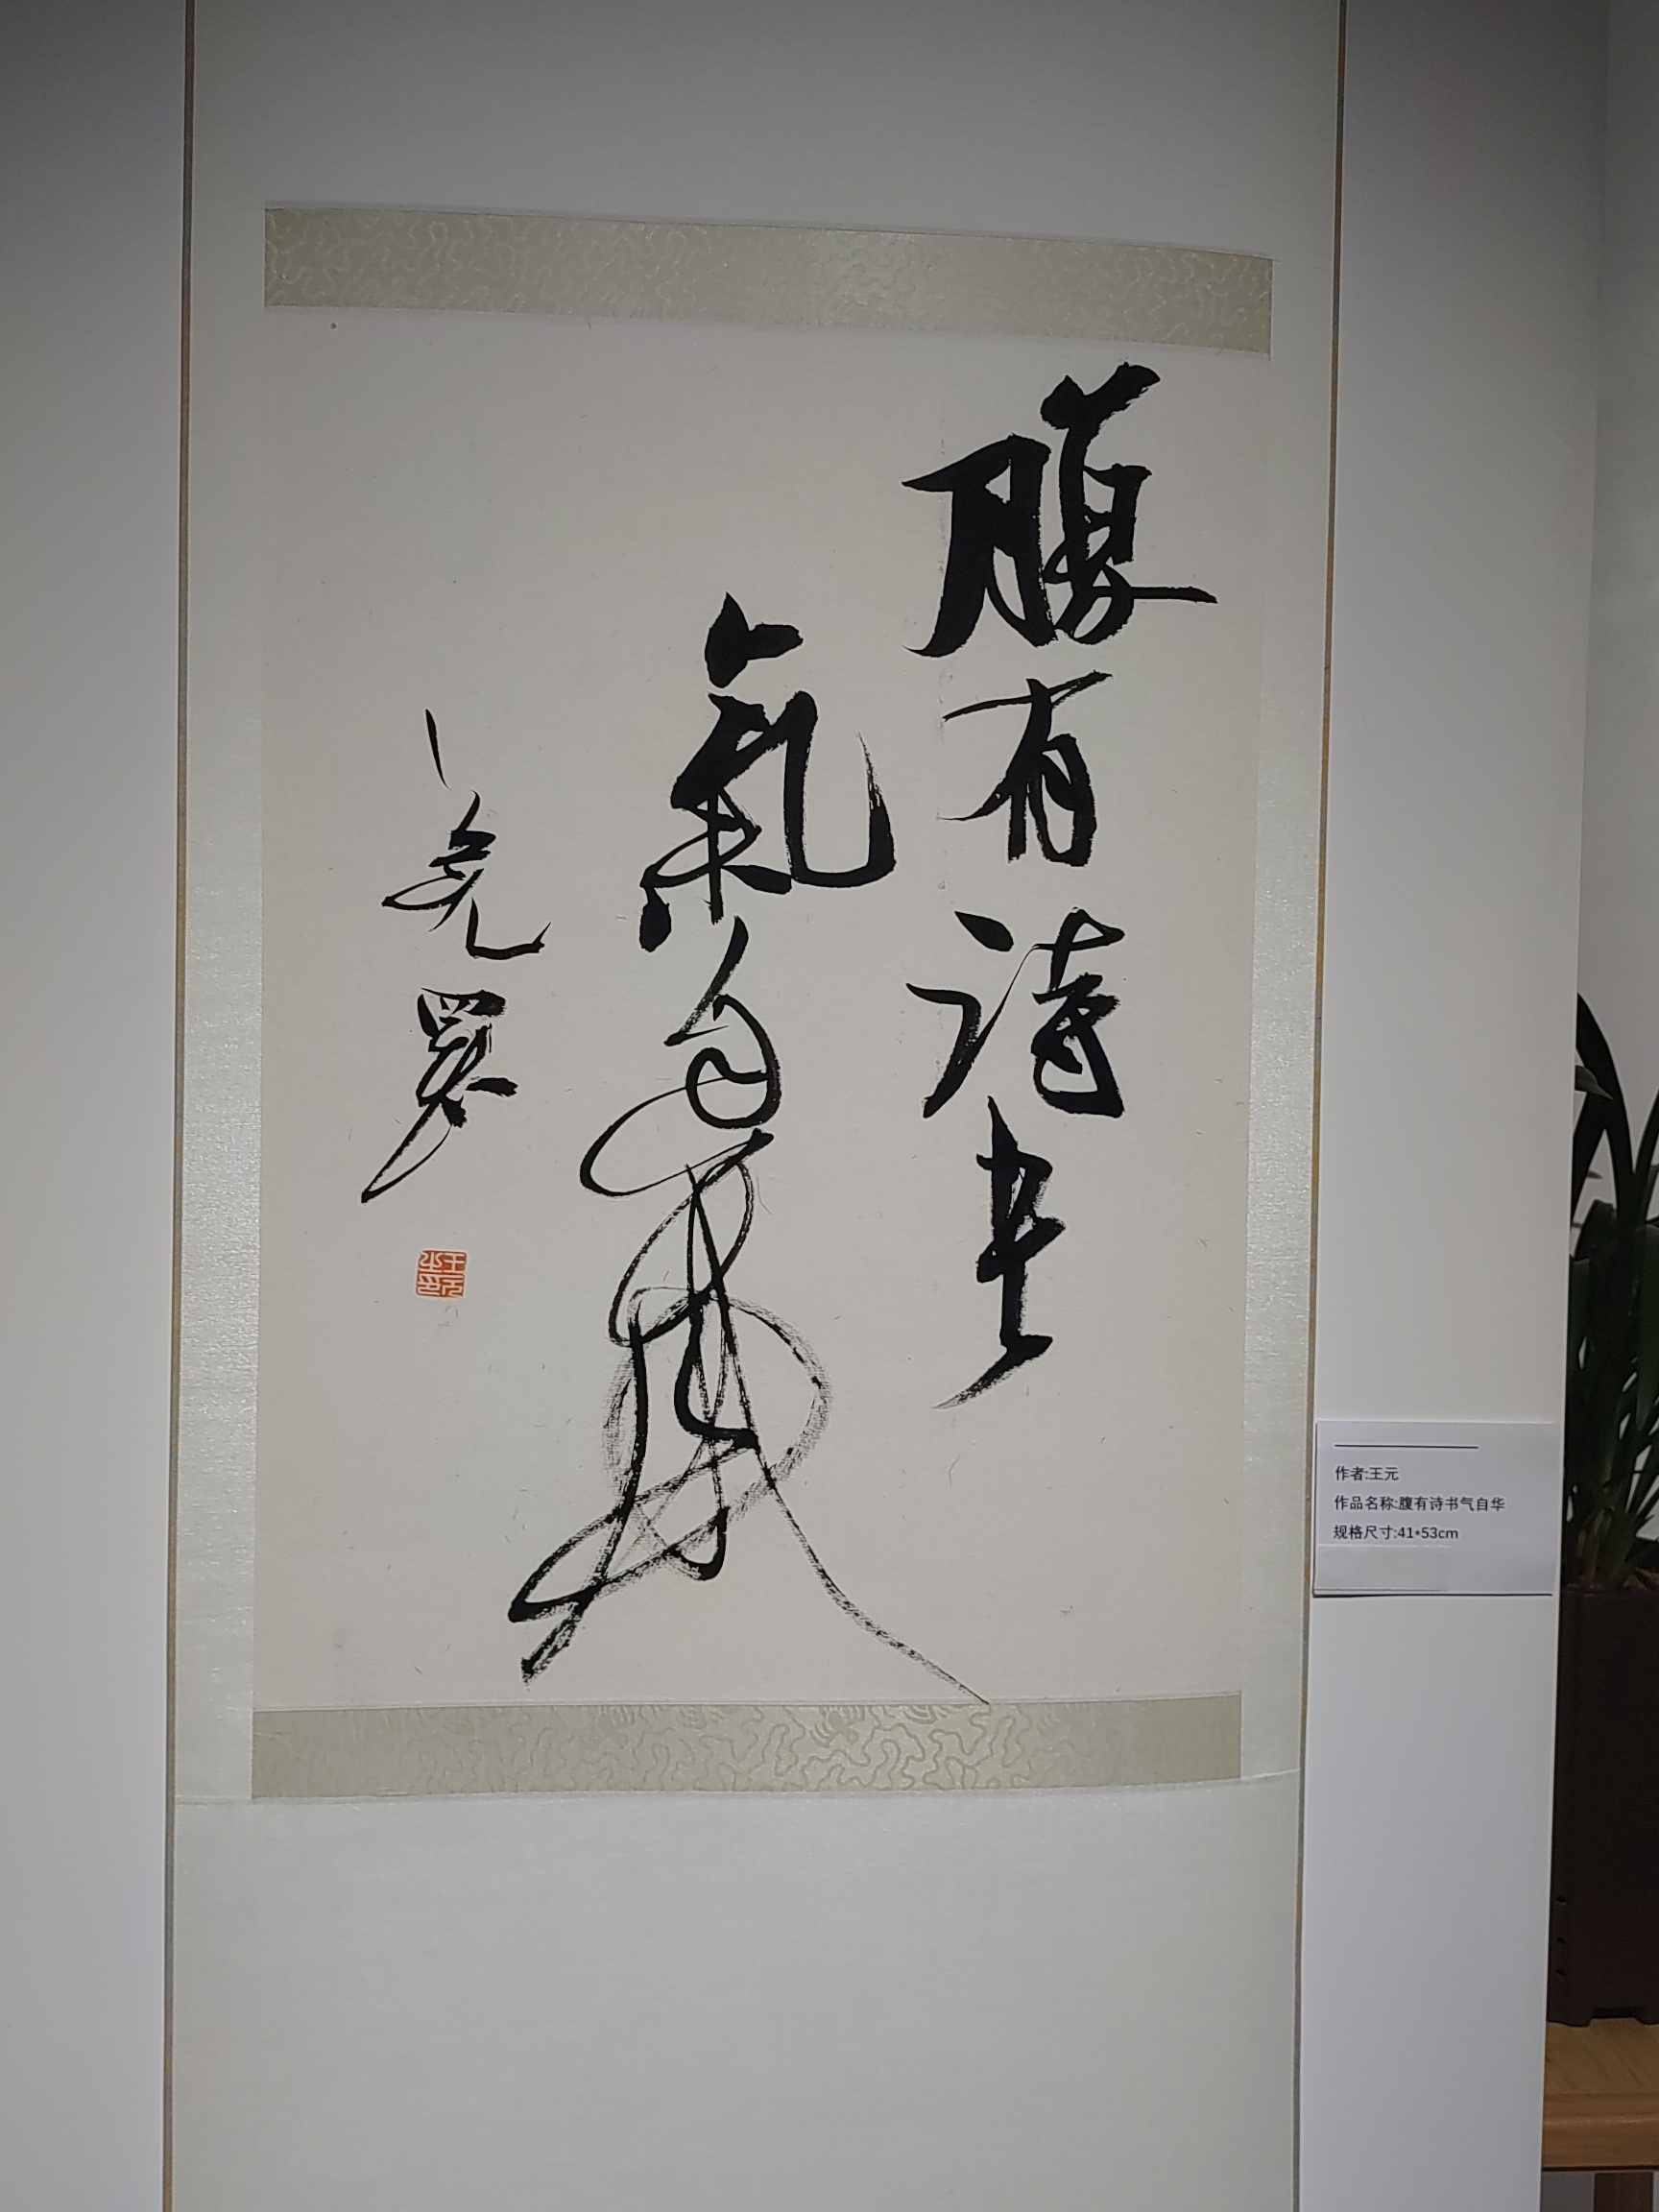 腹有诗书
氣自華
王元
之印
作者:王元
作品名称:腹有诗书气自华
规格尺寸:41*53cm